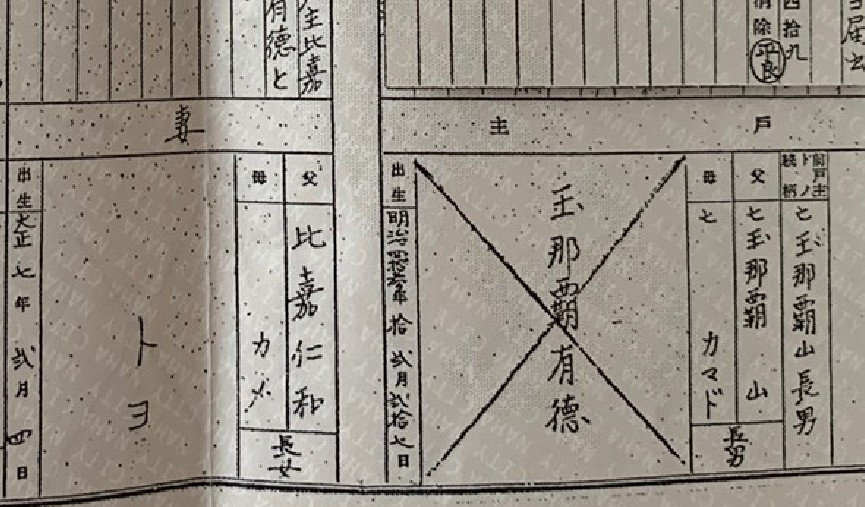 届出
四拾九
消除
平良
主比嘉
有德と
戸主
前戸主トノ続柄
亡玉那覇山長男
父
亡玉那覇山
母
亡カマド
長男
玉那覇有德
出生
明治年拾弐月弐拾七日
妻
父
比嘉仁和
母
カメ
長女
トヨ
出生
大正七年弐月四日